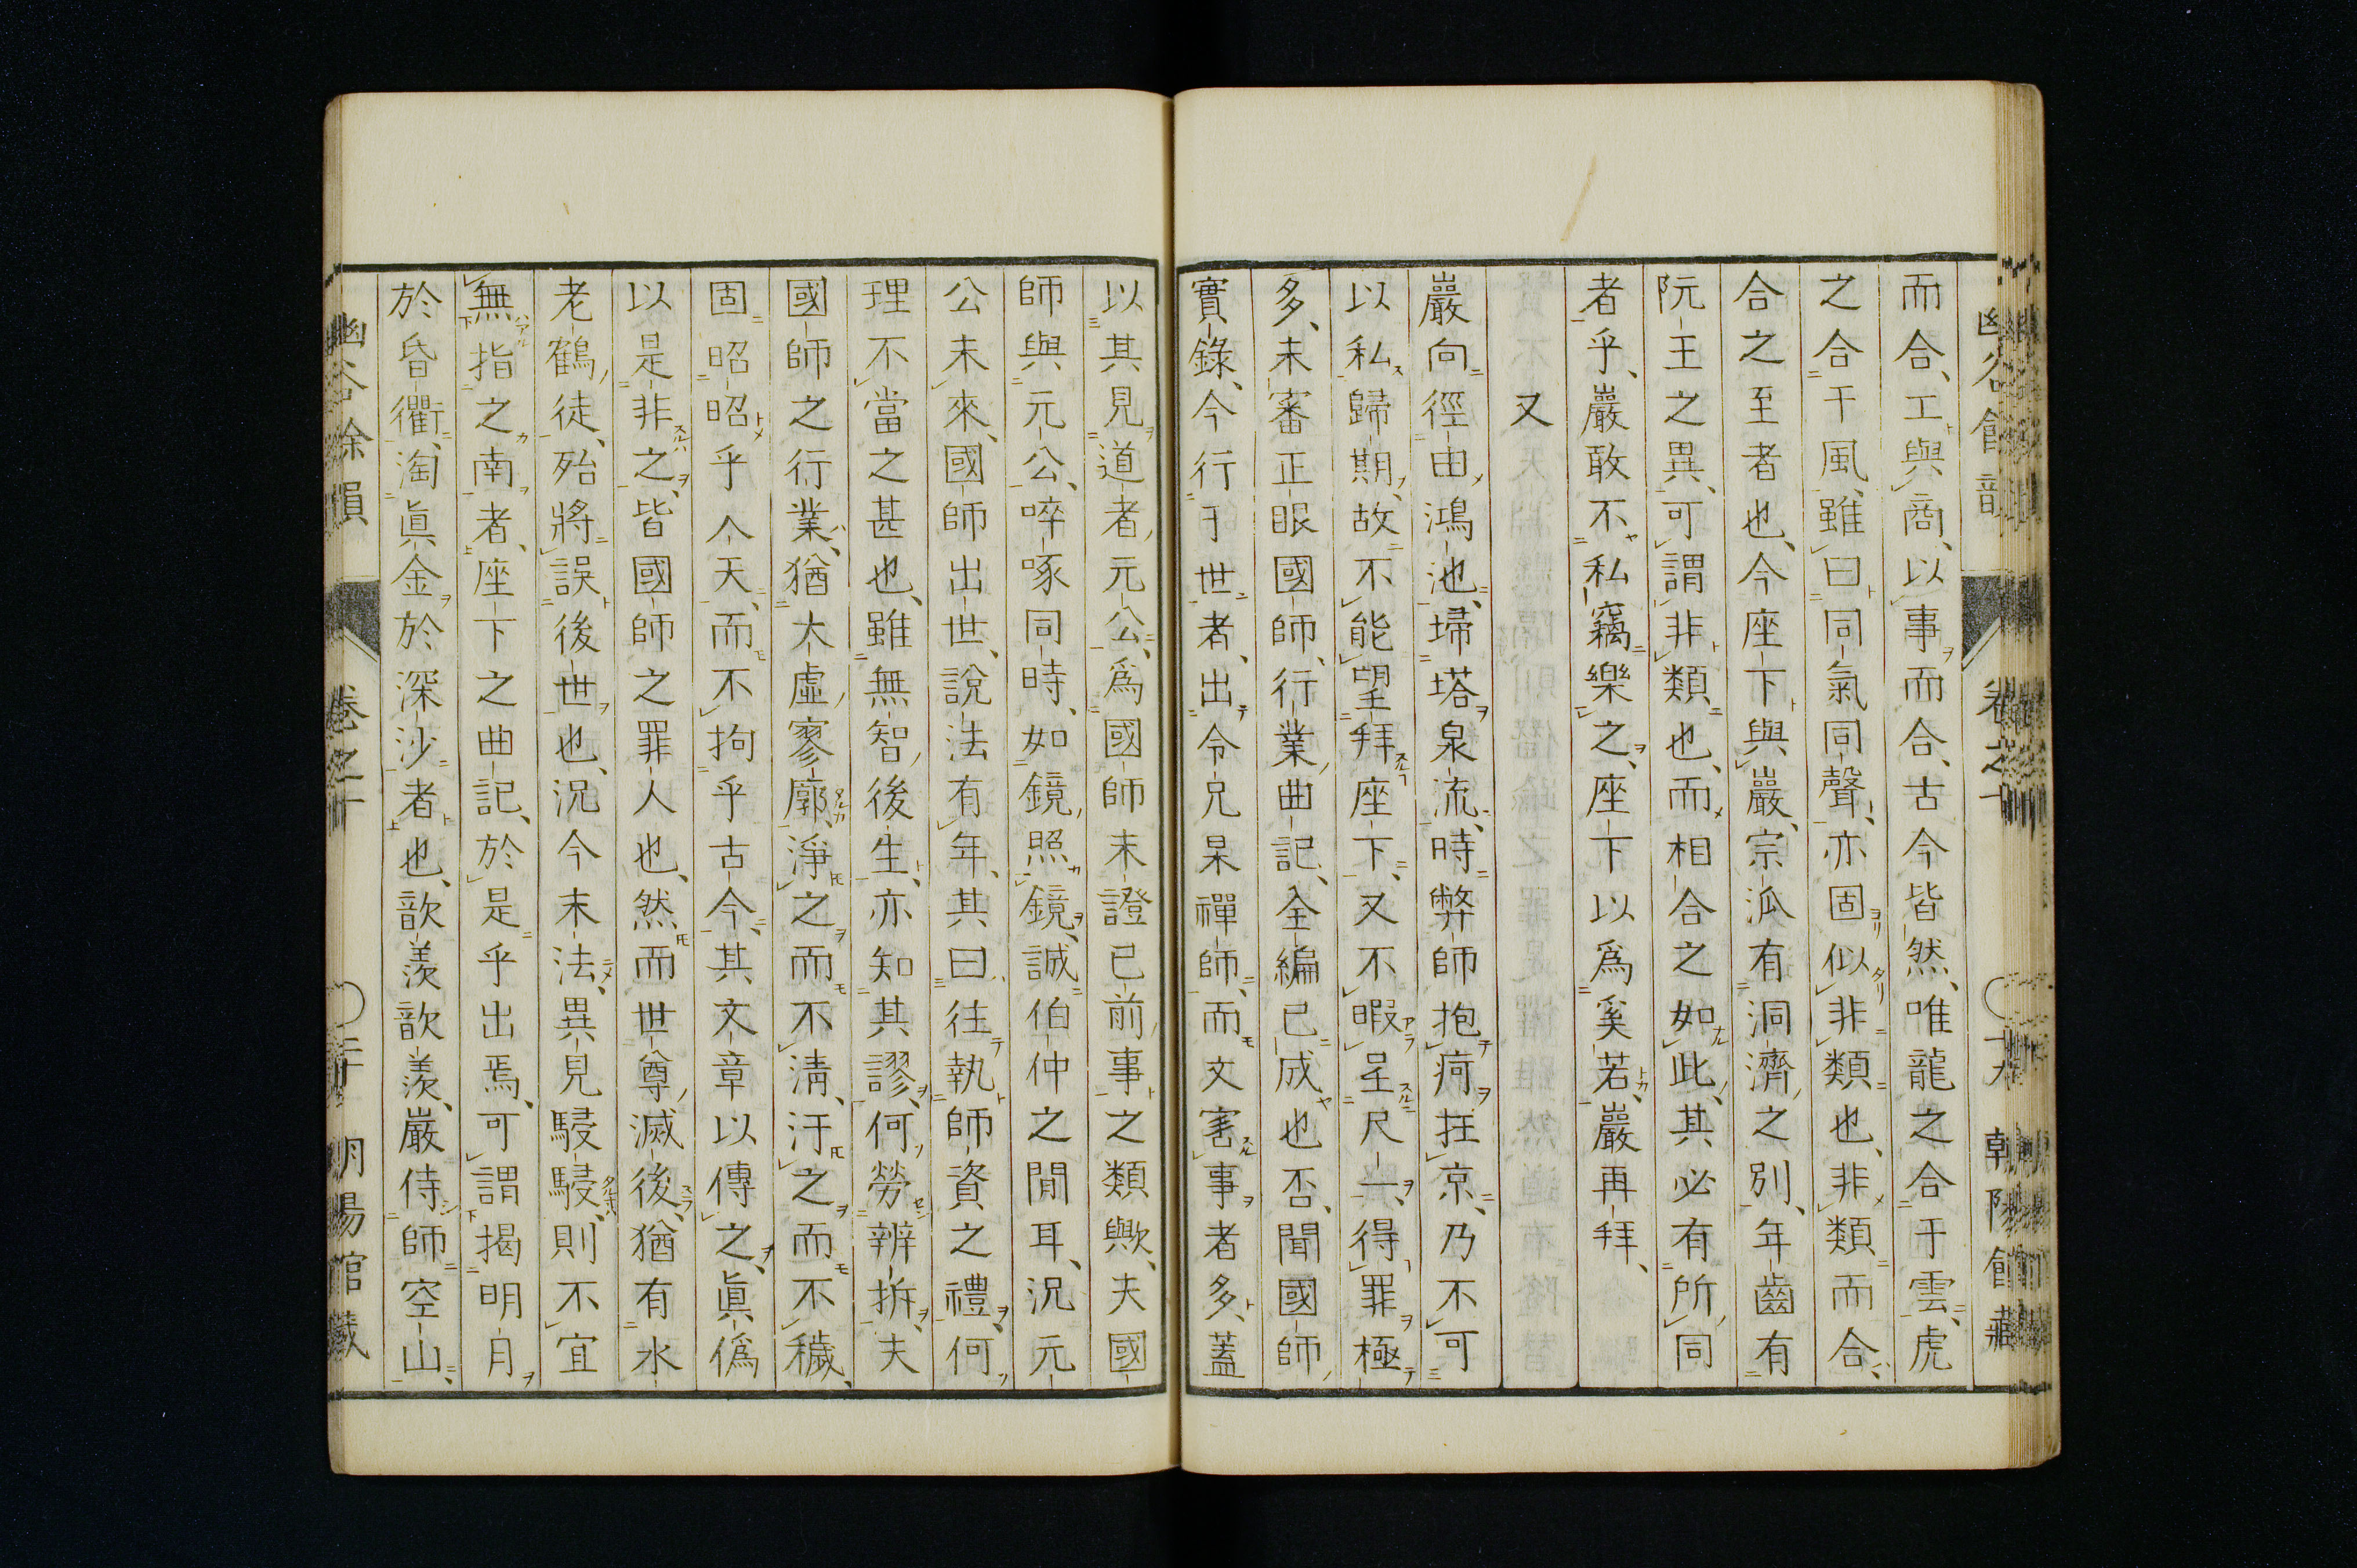 而合、工與商、以事而合、古今皆然、唯龍之合于雲、虎
之合于風、雖曰同氣同聲、亦固似非類也、非類而合、
合之至者也、今座下與巖、宗派有洞濟之別、年齒有
阮王之異、可謂非類也、而相合之如此、其必有所同
者乎、巖敢不私竊樂之、座下以爲奚若、巖再拜、
又
巖向徑由鴻池、埽塔泉流、時弊師抱痾在京、乃不可
以私歸期、故不能望拜座下、又不暇呈尺一、得罪極
多、未審正眼國師、行業曲記、全編已成也否、聞國師
實錄、今行于世者、出令兄杲禪師、而文害事者多、蓋
以其見道者、元公爲國師未證已前事之類歟、夫國
師與元公、啐啄同時、如鏡照鏡、誠伯仲之間耳、況元
公未來、國師出世、說法有年、其曰往執師資之禮、何
理不當之甚也、雖無智後生、亦知其謬、何勞辨拆、夫
國師之行業、猶大虛寥廓、淨之而不淸、汙之而不穢、
固昭昭乎人天、而不拘乎古今、其文章以傳之、眞僞
以是非之、皆國師之罪人也、然而世尊滅後、猶有水
老鶴徒、殆將誤後世也、況今末法、異見駸駸、則不宜
無指之南者、座下之曲記、於是乎出焉、可謂揭明月
於昏衢、淘眞金於深沙者也、歆羨歆羨、巖侍師空山、
幽谷餘韻 卷之十 〇二十 朝陽館藏